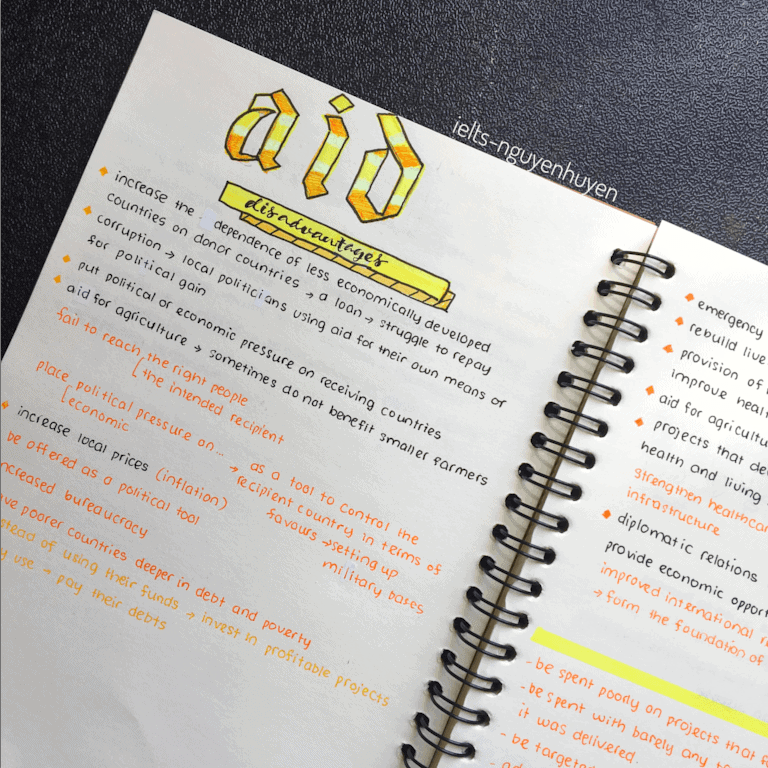 aid
ielts-nguyenhuyen
disadvantages
increase the dependence of less economically developed
countries on donor countries → a loan → struggle to repay
corruption → local politicians using aid for their own means or
for political gain
put political or economic pressure on receiving countries
aid for agriculture → sometimes do not benefit smaller farmers
fail to reach the right people
the intended recipient
place political pressure on... → as a tool to control the
economic
recipient country in terms of
favours → setting up
military bates
increase local prices (inflation)
be offered as a political tool
ncreased bureaucracy
ve poorer countries deeper in debt and poverty
stead of using their funds → invest in profitable projects
y use → pay their debts
emergency
rebuild live
provision of
improve healt
aid for agricultu
projects that de
health and living
strengthen healthcar
infrastructure
diplomatic relations
provide economic opport
improved international r
→ form the foundation of
- be spent poorly on projects that f
- be spent with barely any
it was delivered.
- be targete